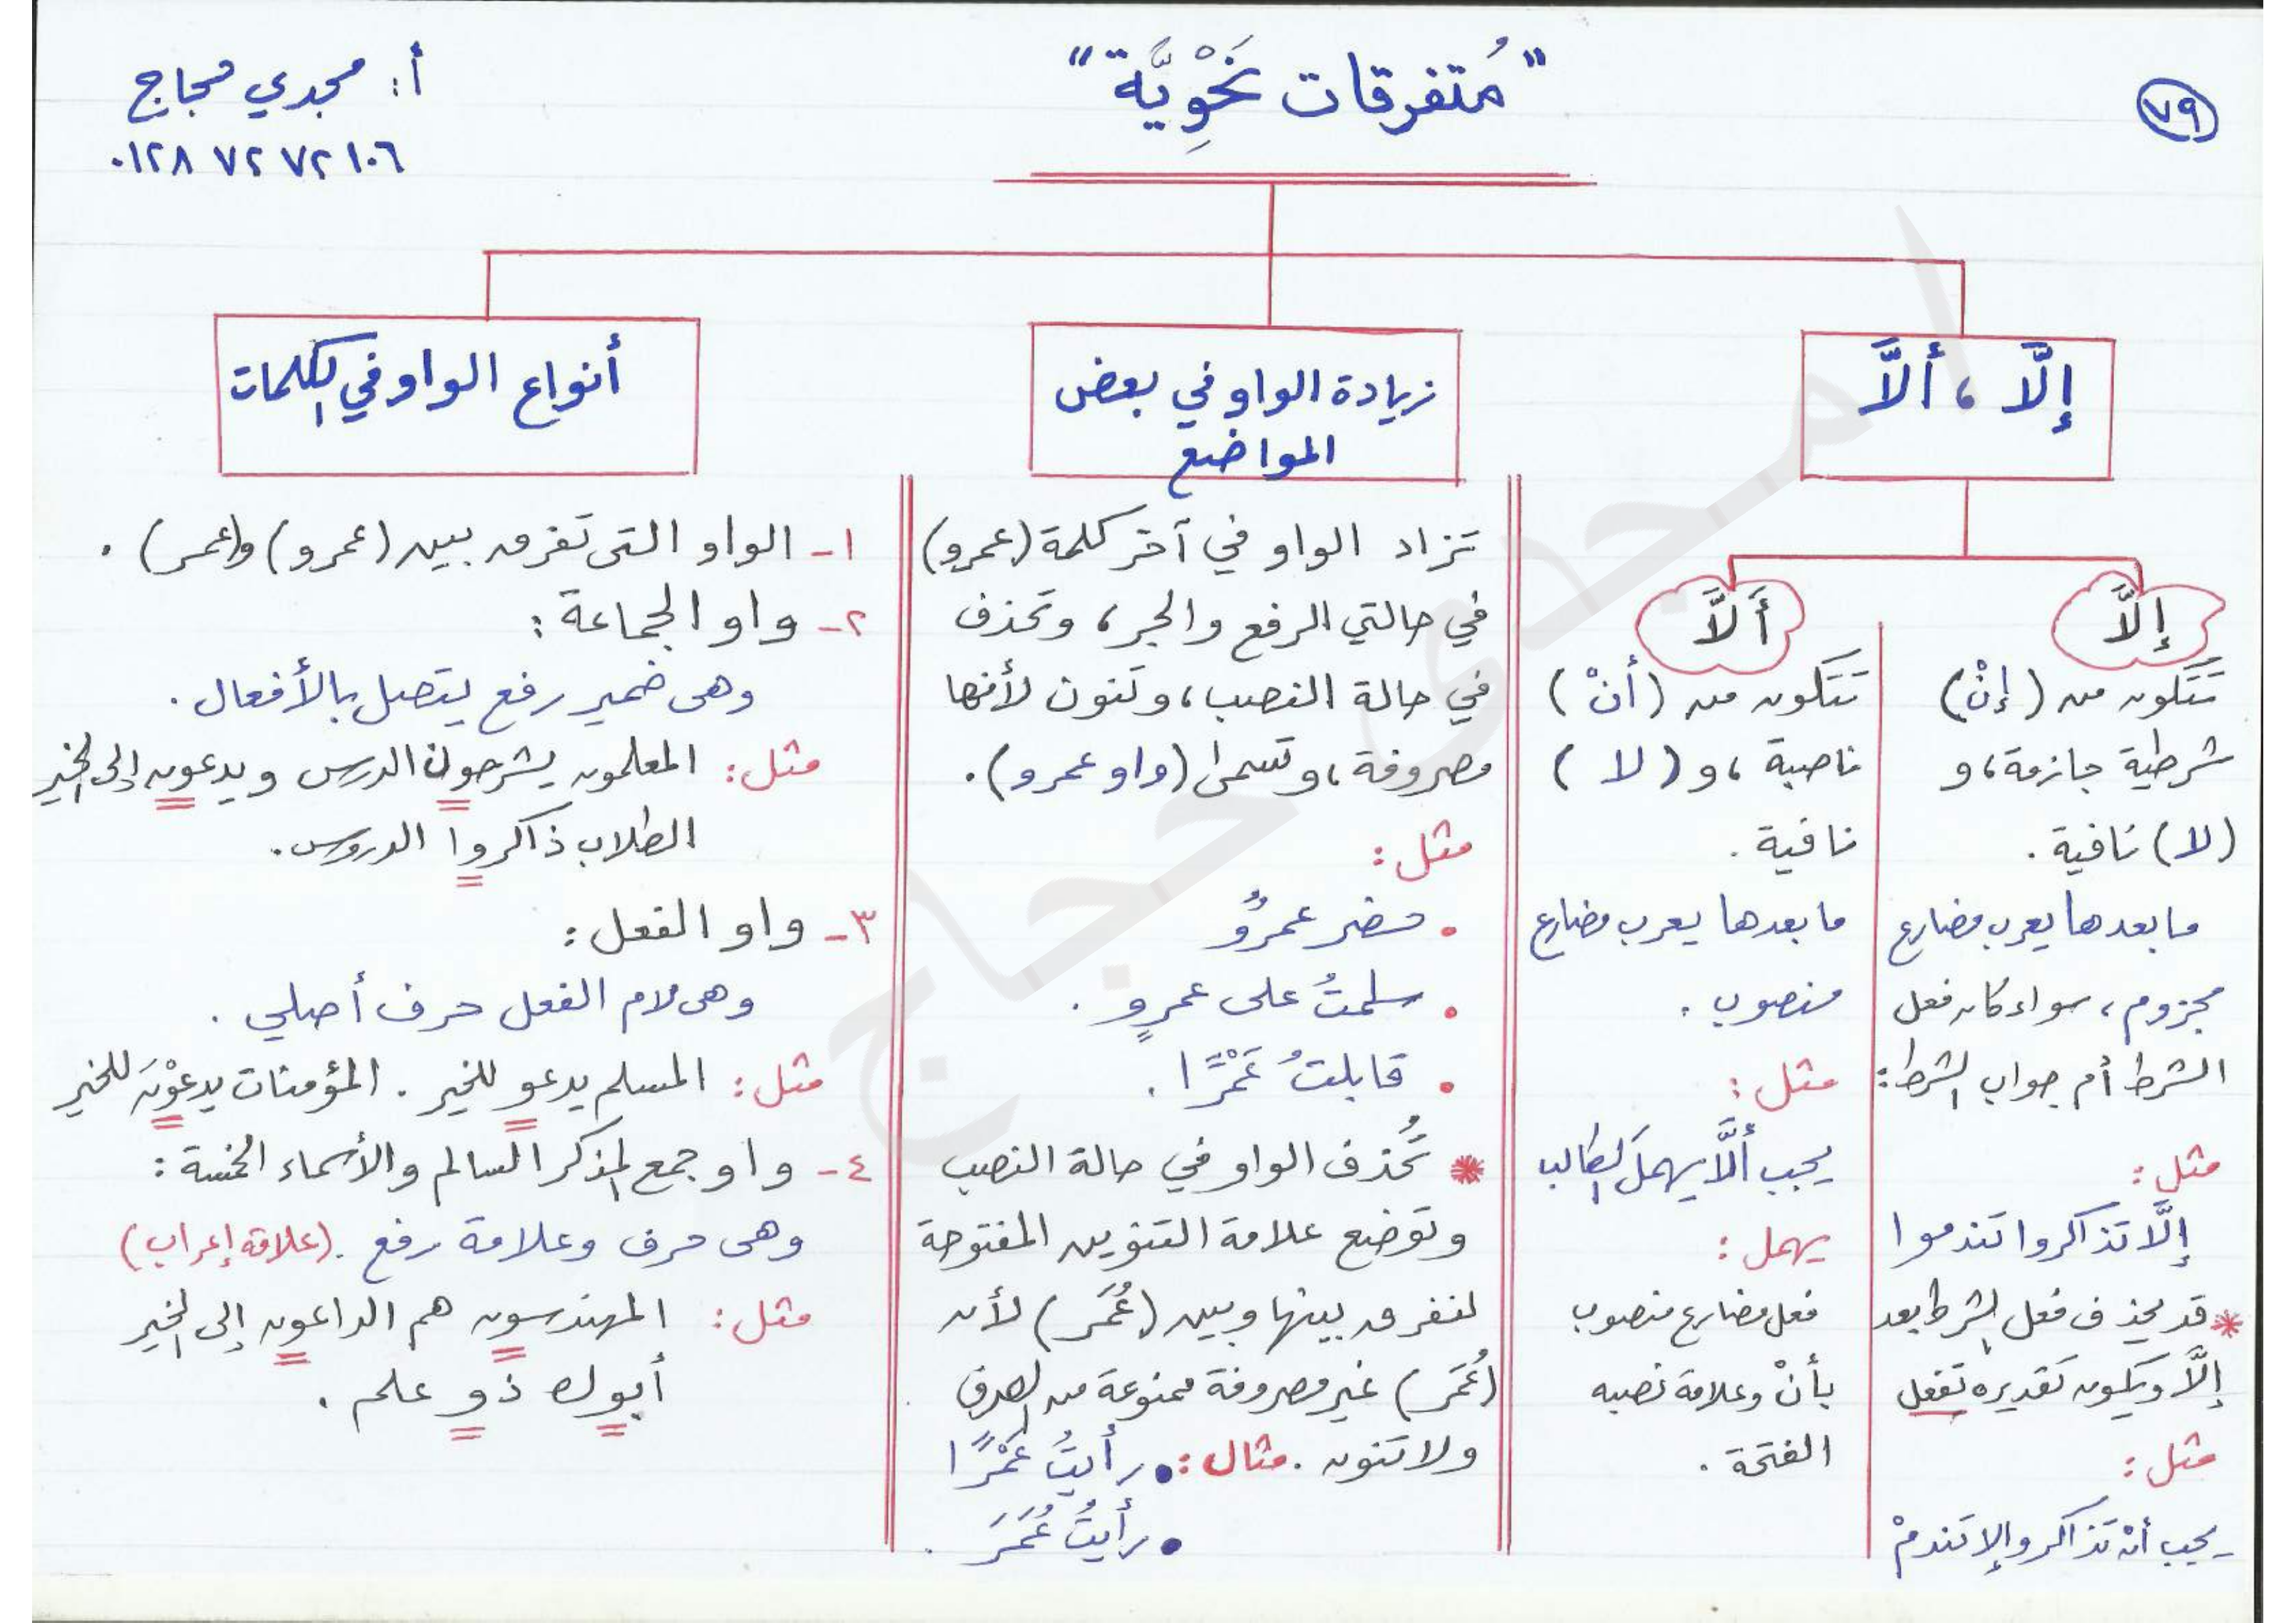 ٧٩
"مُتفرقات نَحْوِيَّة"
أ: مجدي حجاج
٠١٢٨ ٧٢ ٧٢ ١٠٦
إلَّا ، ألَّا
إلَّا
تَتَكون من (إنْ)
شرطية جازمة، و
(لا) نافية .
ما بعدها يعرب مضارع
مجزوم، سواء كان فعل
الشرط أم جواب الشرط:
مثل:
إلَّا تذاكروا تندموا
* قد يحذف فعل الشرط بعد
إلَّا ويكون تقديره تفعل
مثل:
يجب أنْ تذاكر وإلا تندمْ
ألَّا
تَتَكون من (أنْ)
ناصبة ، و (لا)
نافية .
ما بعدها يعرب مضارع
منصوب .
مثل:
يجب ألَّا يهملَ الطالب
يهمل:
فعل مضارع منصوب
بأنْ وعلامة نصبه
الفتحة .
زيادة الواو في بعض
المواضع
تزاد الواو في آخر كلمة (عمرو)
في حالتي الرفع والجر، وتحذف
في حالة النصب، وتنون لأنها
مصروفة، وتسمى (واو عمرو).
مثل:
• حضر عمرٌو
• سلمتُ على عمرٍو .
• قابلتُ عَمْرًا .
* تُحذف الواو في حالة النصب
وتوضع علامة التنوين المفتوحة
لنفرق بينها وبين (عُمَر) لأن
(عُمَر) غير مصروفة ممنوعة من الصرف
ولا تنون . مثال: • رأيتُ عَمْرًا
• رأيتُ عُمَرَ .
أنواع الواو في الكلمات
١- الواو التى تفرق بين (عمرو) و(عمر) .
٢- واو الجماعة:
وهى ضمير رفع يتصل بالأفعال .
مثل: المعلمون يشرحون الدرس ويدعون إلى الخير
الطلاب ذاكروا الدروس.
٣- واو الفعل:
وهى لام الفعل حرف أصلي .
مثل: المسلم يدعو للخير . المؤمنات يدعوْنَ للخير
٤- واو جمع المذكر السالم والأسماء الخمسة:
وهى حرف وعلامة رفع . (علامة إعراب)
مثل: المهندسون هم الداعون إلى الخير
أبوك ذو علم .
أ/مجدى حجاج